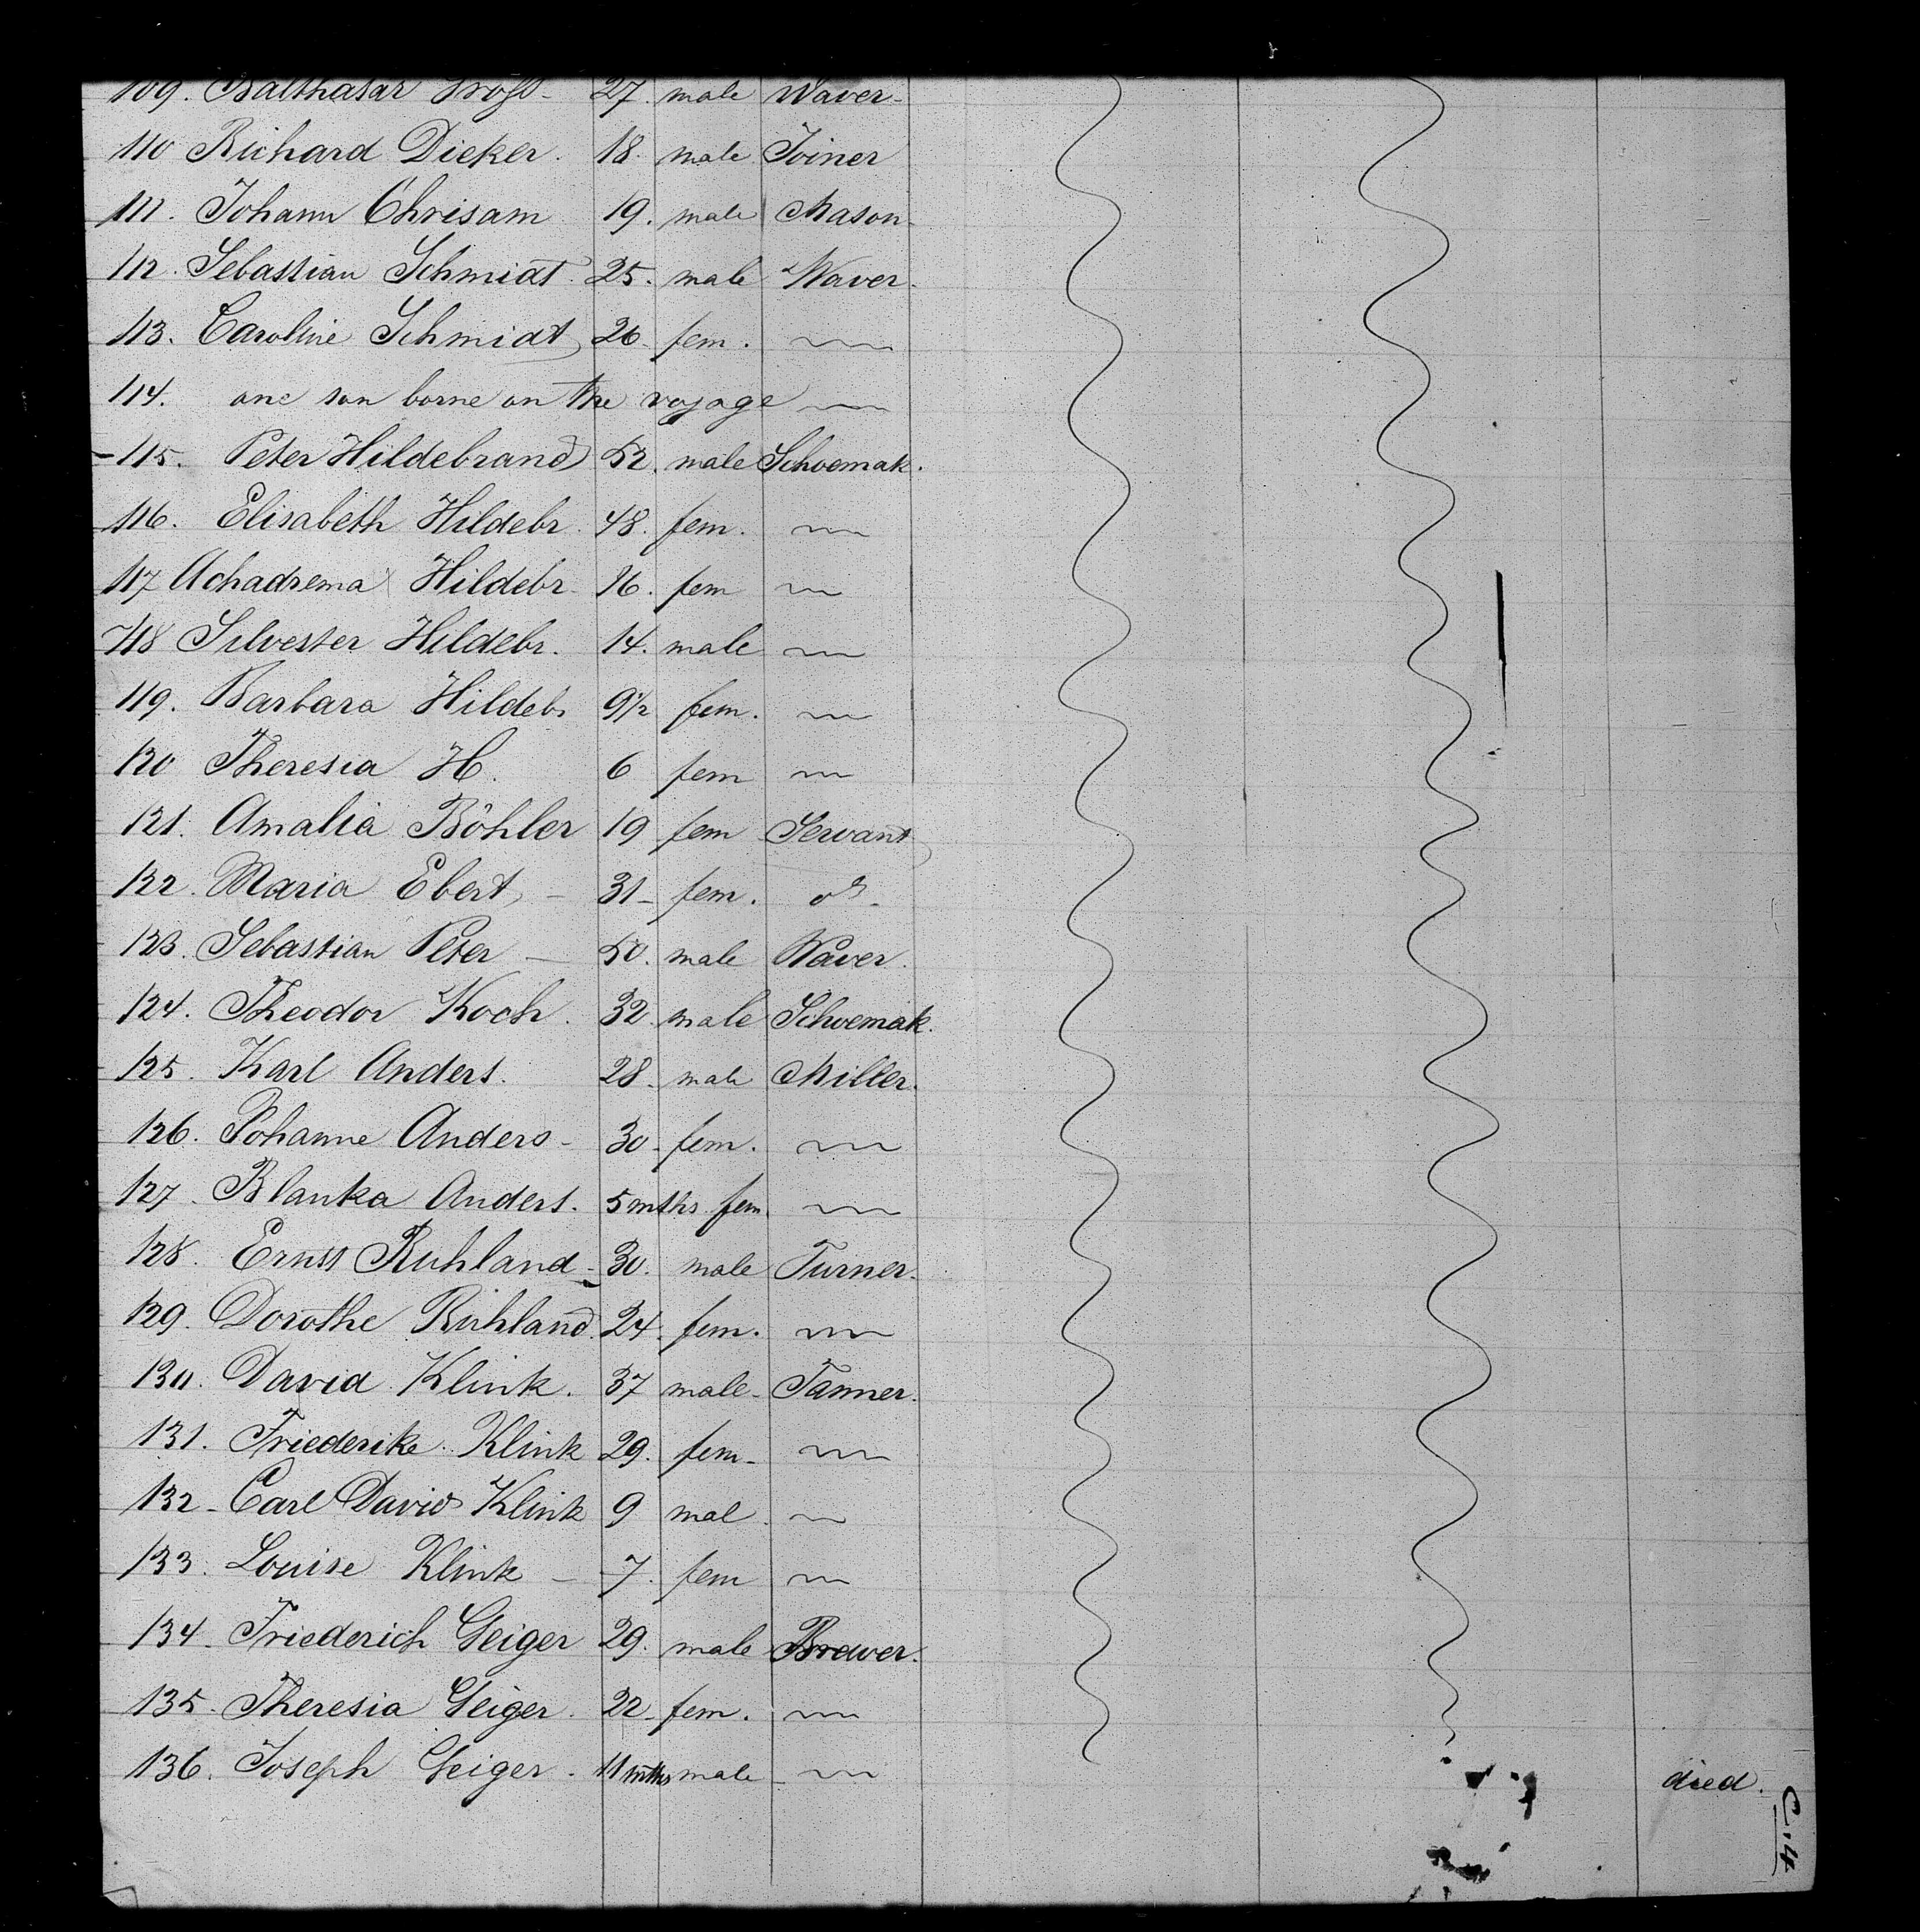 109. Balthasar 27. male Waver-
110 Richard Dieker. 18. male Joiner
111. Johann Chrisam 19. male Mason-
112. Sebastian Schmidt. 25. male Waver.
113. Caroline Schmidt 26 fem. 〰
114. one son borne on the voyage 〰
115. Peter Hildebrand 52. male Schoemak.
116. Elisabeth Hildebr. 48. fem. 〰
117 Hildebr. 16. fem 〰
118 Silvester Hildebr. 14. male 〰
119. Barbara Hildebr 9½ fem. 〰
120 Theresia H. 6 fem 〰
121. Amalia Böhler 19 fem Servant
122. Maria Ebert - 31- fem. do-
123. Sebastian Peter — 50. male Waver.
124. Theodor Koch. 32. male Schoemak.
125. Karl Anders. 28. male Miller.
126. Johanne Anders- 30- fem. 〰
127. Blanka Anders. 5 mths fem. 〰
128. Ernst Ruhland- 30. male Turner.
129. Dorothe Ruhland. 24. fem. 〰
130. David Klink. 37 male- Tanner.
131. Friederike Klink 29. fem- 〰
132- Carl David Klink 9 mal 〰
133. Louise Klink - 7. fem 〰
134. Friederich Geiger 29. male Brewer.
135. Theresia Geiger. 22- fem. 〰
136. Joseph Geiger. 11 mths male 〰 died.
C.14